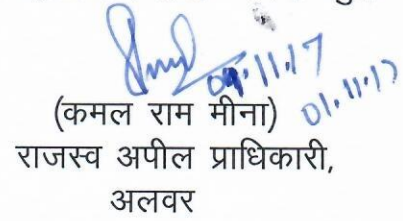 01.11.17
01.11.17
(कमल राम मीना)
राजस्व अपील प्राधिकारी,
अलवर